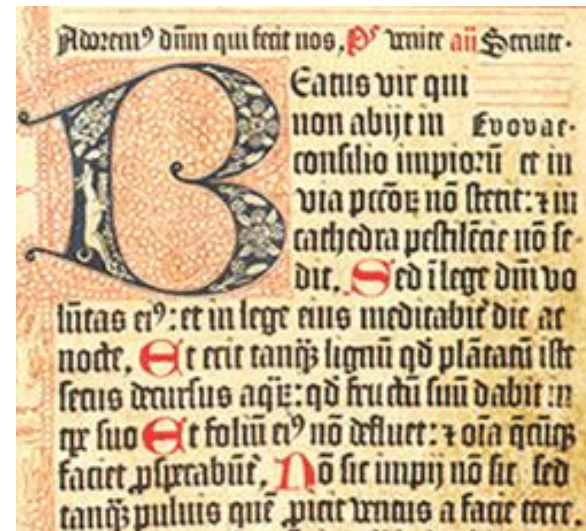 Adorem⁹ dñm qui fecit nos, Ps venite añ Servite.
Beatus vir qui
non abijt in Evovae.
consilio impiorũ et in
via pccõꝝ nõ stetit: ⁊ in
cathedra pestilẽcie nõ se-
dit, Sed ĩ lege dñi vo
lũtas ei⁹: et in lege eius meditabit̃ die ac
nocte, Et erit tanq̃ꝫ lignũ qd̃ plãtatũ iste
secus decursus aqꝝ: qd̃ fructũ suũ dabit in
tꝑe suo Et foliũ ei⁹ nõ defluet: ⁊ oĩa q̃cũqꝫ
faciet ꝓsꝑabũt̃, Nõ sic impij nõ sic sed
tanq̃ꝫ pulvis quẽ ꝓicit ventus a facie terre,